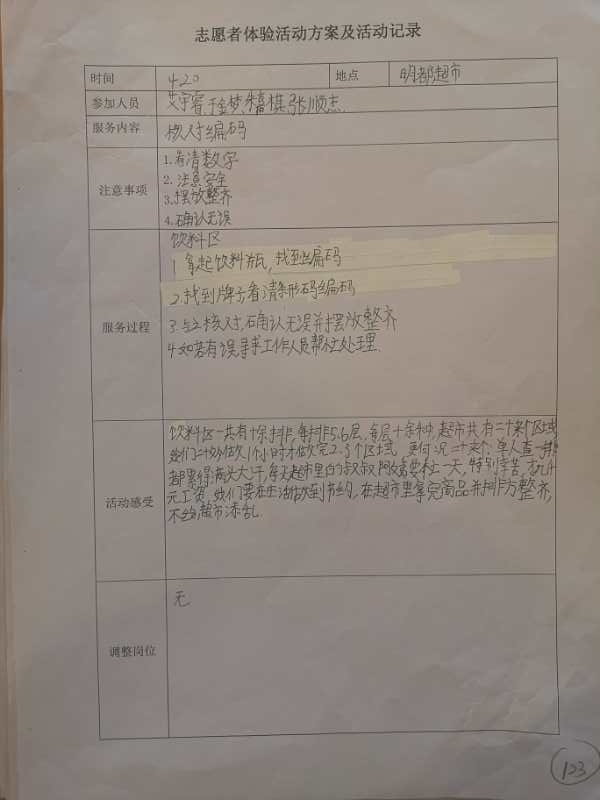 志愿者体验活动方案及活动记录
时间 4.20 地点 明都超市
参加人员 艾宇睿、于金梦、朱嘉棋、张顺志
服务内容 核对编码
注意事项 1.看清数字
2.注意安全
3.摆放整齐
4.确认无误
服务过程 饮料区
1.拿起饮料瓶,找到编码
2.找到牌子看清条形码编码
3.与之核对,确认无误并摆放整齐
4.如若有误寻求工作人员帮忙处理.
活动感受 饮料区一共有十余排,每排5.6层,每层十余种,超市共有二十来个区域
我们二十分钟做1个小时才做完2.3个区域,更何况二十来个,单人查一排
都累得满头大汗,每天超市里的叔叔阿姨要忙一天,特别辛苦,
元工资,我们要在生活做到节约,在超市里拿完商品并排方整齐,
不给超市添乱.
调整岗位 无
123